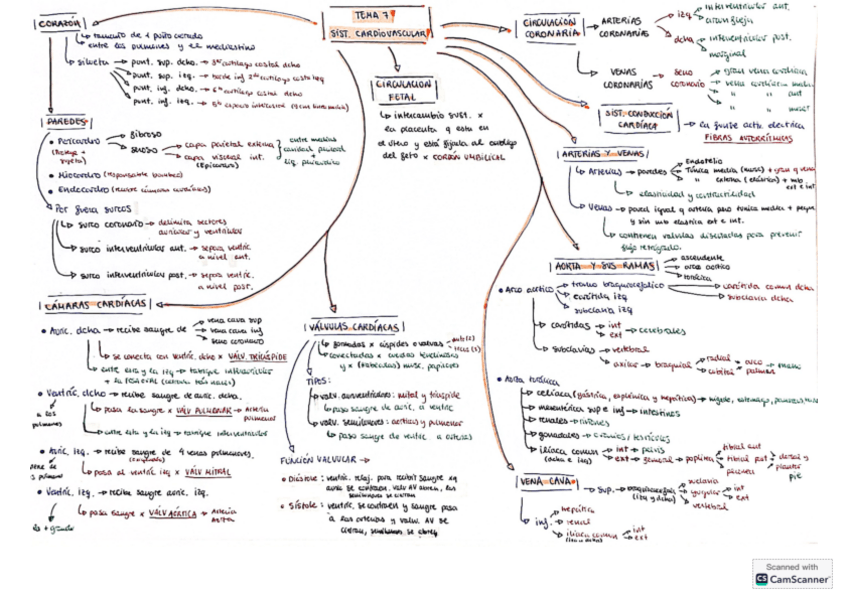 TEMA 7
SIST. CARDIOVASCULAR
CORAZÓN
tamaño de 1 puño cerrado
entre los pulmones y el mediastino
silueta → punt. sup. dcho. → 3er cartílago costal dcho
punt. sup. izq. → borde inf 2do cartílago costal izq
punt. inf. dcho. → 6to cartílago costal dcho
punt. inf. izq. → 5to espacio intercostal
PAREDES
• Pericardio
fibroso
seroso
capa parietal externa
capa visceral int.
(Epicardio)
entre medias
cavidad pericard
liq. pericárdico
• Miocardio (responsable bombeo)
• Endocardio (recubre cámaras cardíacas)
Por fuera surcos
surco coronario → delimita sectores
auricular y ventricular
surco interventricular ant. → separa ventríc.
a nivel ant.
surco interventricular post. → separa ventríc.
a nivel post.
CÁMARAS CARDÍACAS
• Auríc. dcha → recibe sangre de
vena cava sup
vena cava inf
seno coronario
se conecta con ventríc. dcho x VÁLV. TRICÚSPIDE
entre esta y la izq → tabique
• Ventríc. dcho → recibe sangre de auríc. dcha.
a los
pulmones
pasa la sangre x VÁLV PULMONAR → Arteria
pulmonar
entre esta y la izq → tabique interventricular
• Auríc. izq. → recibe sangre de 4 venas pulmonares.
pasa al ventríc izq x VÁLV MITRAL
• Ventríc. izq. → recibe sangre auríc. izq.
pasa sangre x VÁLV AÓRTICA → Arteria
Aorta
CIRCULACIÓN
FETAL
intercambio sust. x
la placenta q esta en
el útero y está fijada al ombligo
del feto x CORDÓN UMBILICAL
VÁLVULAS CARDÍACAS
formadas x cúspides o valvas
conectadas x cuerdas tendinosas
y x (trabéculas) músc. papilares
TIPOS:
valv. auriculoventriculares: mitral y tricúspide
paso sangre de auríc. a ventríc
valv. semilunares: aórtica y pulmonar
paso sangre de ventríc. a arterias
FUNCIÓN VALVULAR →
• Diástole: ventríc. relaj. para recibir sangre xq
auríc se contraen. valv AV abren, las
semilunares se cierran
• Sístole: ventríc. se contraen y sangre pasa
a las arterias y valv. AV se
cierran, semilunares se abren
CIRCULACIÓN
CORONARIA
ARTERIAS
CORONARIAS
izq
interventricular ant.
circunfleja
dcha
interventricular post.
marginal
VENAS
CORONARIAS
seno
coronario
gran vena cardíaca
vena cardíaca media
" " ant
" "
SIST. CONDUCCIÓN
CARDÍACA
es fuente activ. eléctrica
FIBRAS AUTORRÍTMICAS
ARTERIAS Y VENAS
Arterias → paredes
Endotelio
Túnica media (musc)
" externa (elástica)
ext e int
elasticidad y contractilidad
Venas → pared igual q arteria pero túnica media + peq
y sin mb elástica ext e int.
contienen válvulas diseñadas para prevenir
flujo retrógrado.
AORTA Y SUS RAMAS
ascendente
arco aórtico
torácica
• Arco aórtico
tronco braquiocefálico
carótida izq
subclavia izq
carótida comun dcha
subclavia dcha
carótidas
int
ext
cerebrales
subclavias
vertebral
axilar → braquial
radial
cubital
arco
palmar
mano
• Aorta torácica
celíaca (gástrica, esplénica y hepática) → hígado, estómago, páncreas
mesentérica sup e inf → intestinos
renales → riñones
gonadales → ovarios / testículos
ilíaca comun
(dcha e izq)
int → pelvis
ext → femoral → poplítea
tibial ant
tibial post
peronea
dorsal y
plantar
pie
VENA CAVA
sup.
braquiocefálica
(izq y dcha)
subclavia
yugular
int
ext
vertebral
inf.
hepática
renal
ilíaca comun
int
ext
Scanned with
CS CamScanner